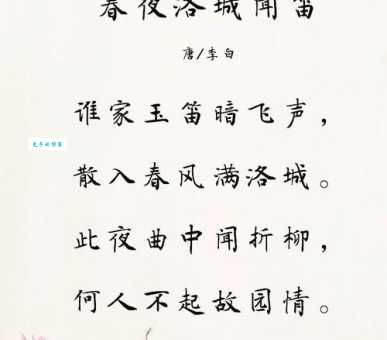 春夜洛城闻笛
唐/李白
谁家玉笛暗飞声，
散入春风满洛城。
此夜曲中闻折柳，
何人不起故园情。